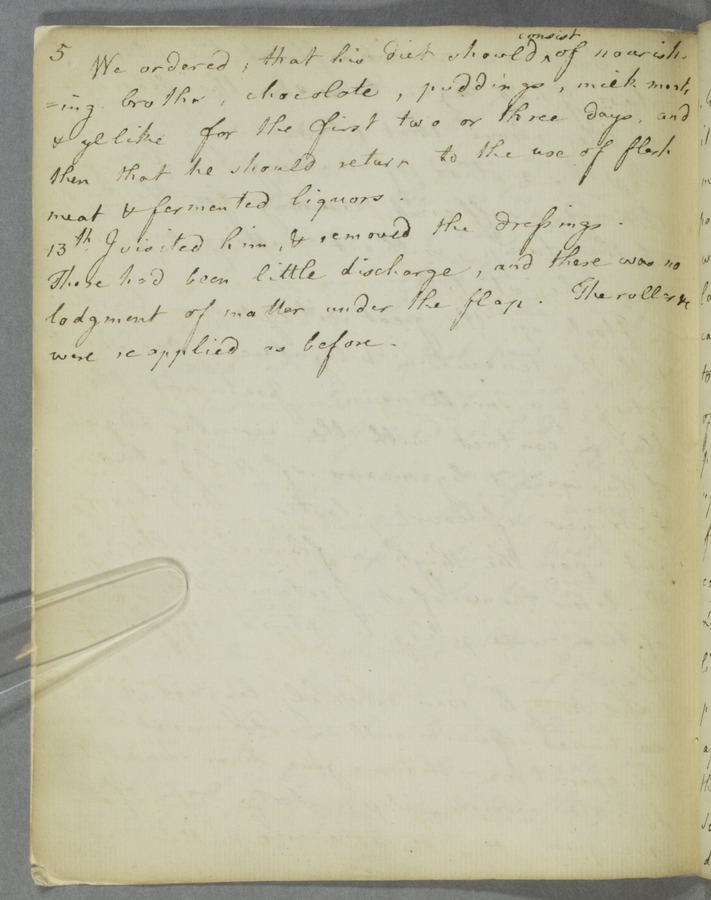 5
We ordered, that his diet should ^consist of nourish-
=ing broths, chocolate, puddings, milk meats,
& ye like for the first two or three days, and
then that he should return to the use of flesh
meat & fermented liquors.
13th. I visited him, & removed the dressings.
There had been little discharge, and there was no
lodgment of matter under the flap. The roller &c
were reapplied as before.